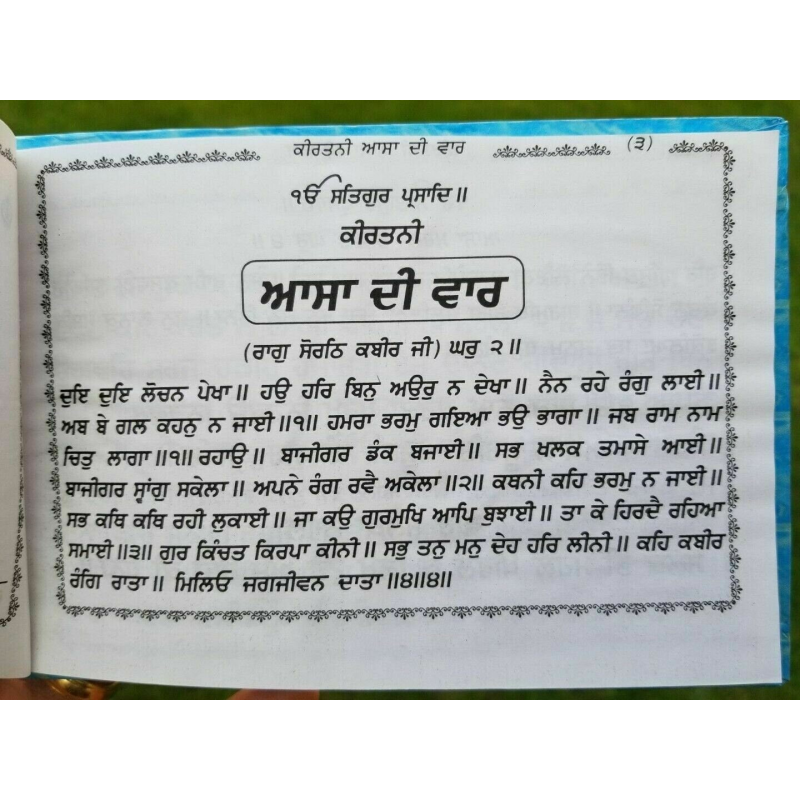 ਕੀਰਤਨੀ ਆਸਾ ਦੀ ਵਾਰ (੩)
ੴ ਸਤਿਗੁਰ ਪ੍ਰਸਾਦਿ॥
ਕੀਰਤਨੀ
ਆਸਾ ਦੀ ਵਾਰ
(ਰਾਗੁ ਸੋਰਠਿ ਕਬੀਰ ਜੀ) ਘਰੁ ੨॥
ਦੁਇ ਦੁਇ ਲੋਚਨ ਪੇਖਾ॥ ਹਉ ਹਰਿ ਬਿਨੁ ਅਉਰੁ ਨ ਦੇਖਾ॥ ਨੈਨ ਰਹੇ ਰੰਗੁ ਲਾਈ॥
ਅਬ ਬੇ ਗਲ ਕਹਨੁ ਨ ਜਾਈ॥੧॥ ਹਮਰਾ ਭਰਮੁ ਗਇਆ ਭਉ ਭਾਗਾ॥ ਜਬ ਰਾਮ ਨਾਮ
ਚਿਤੁ ਲਾਗਾ॥੧॥ ਰਹਾਉ॥ ਬਾਜੀਗਰ ਡੰਕ ਬਜਾਈ॥ ਸਭ ਖਲਕ ਤਮਾਸੇ ਆਈ॥
ਬਾਜੀਗਰ ਸ੍ਵਾਂਗੁ ਸਕੇਲਾ॥ ਅਪਨੇ ਰੰਗ ਰਵੈ ਅਕੇਲਾ॥੨॥ ਕਥਨੀ ਕਹਿ ਭਰਮੁ ਨ ਜਾਈ॥
ਸਭ ਕਥਿ ਕਥਿ ਰਹੀ ਲੁਕਾਈ॥ ਜਾ ਕਉ ਗੁਰਮੁਖਿ ਆਪਿ ਬੁਝਾਈ॥ ਤਾ ਕੇ ਹਿਰਦੈ ਰਹਿਆ
ਸਮਾਈ॥੩॥ ਗੁਰ ਕਿੰਚਤ ਕਿਰਪਾ ਕੀਨੀ॥ ਸਭੁ ਤਨੁ ਮਨੁ ਦੇਹ ਹਰਿ ਲੀਨੀ॥ ਕਹਿ ਕਬੀਰ
ਰੰਗਿ ਰਾਤਾ॥ ਮਿਲਿਓ ਜਗਜੀਵਨ ਦਾਤਾ॥੪॥੪॥